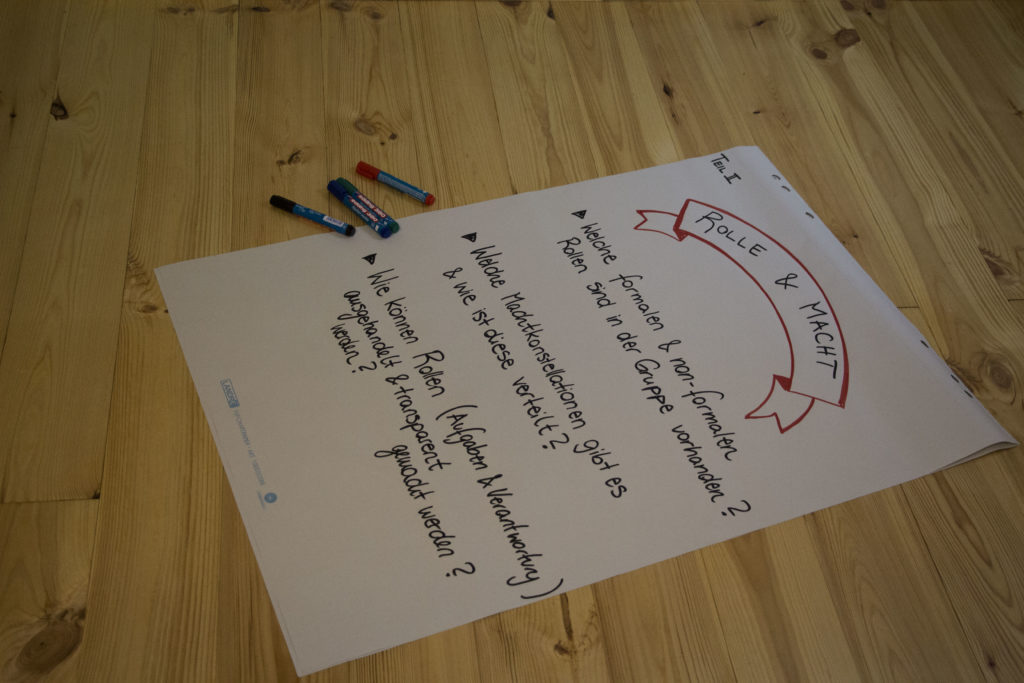 TEIL II
ROLLE & MACHT
Welche formalen & non-formalen
Rollen sind in der Gruppe vorhanden?
Welche Machtkonstellationen gibt es
& wie ist diese verteilt?
Wie können Rollen (Aufgaben & Verantwortung)
ausgehandelt & transparent
gemacht werden?
werden?